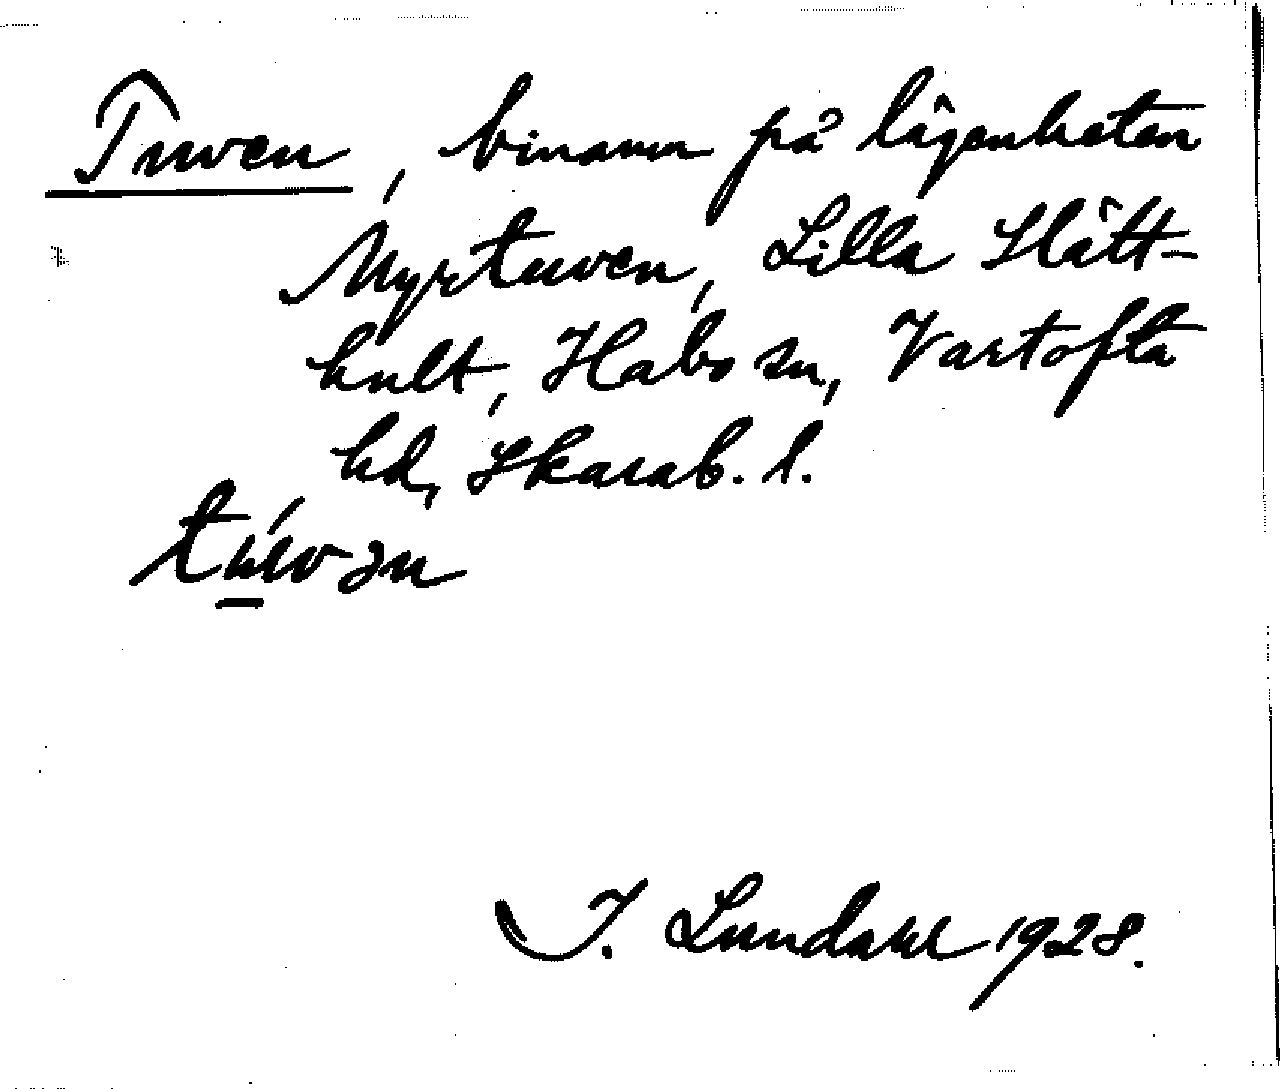 Tuven, binamn på lägenheten
Myrtuven, Lilla Slätt-
hult, Habo sn, Vartofta
hd, Skarab. l.
I. Lundahl 1928.